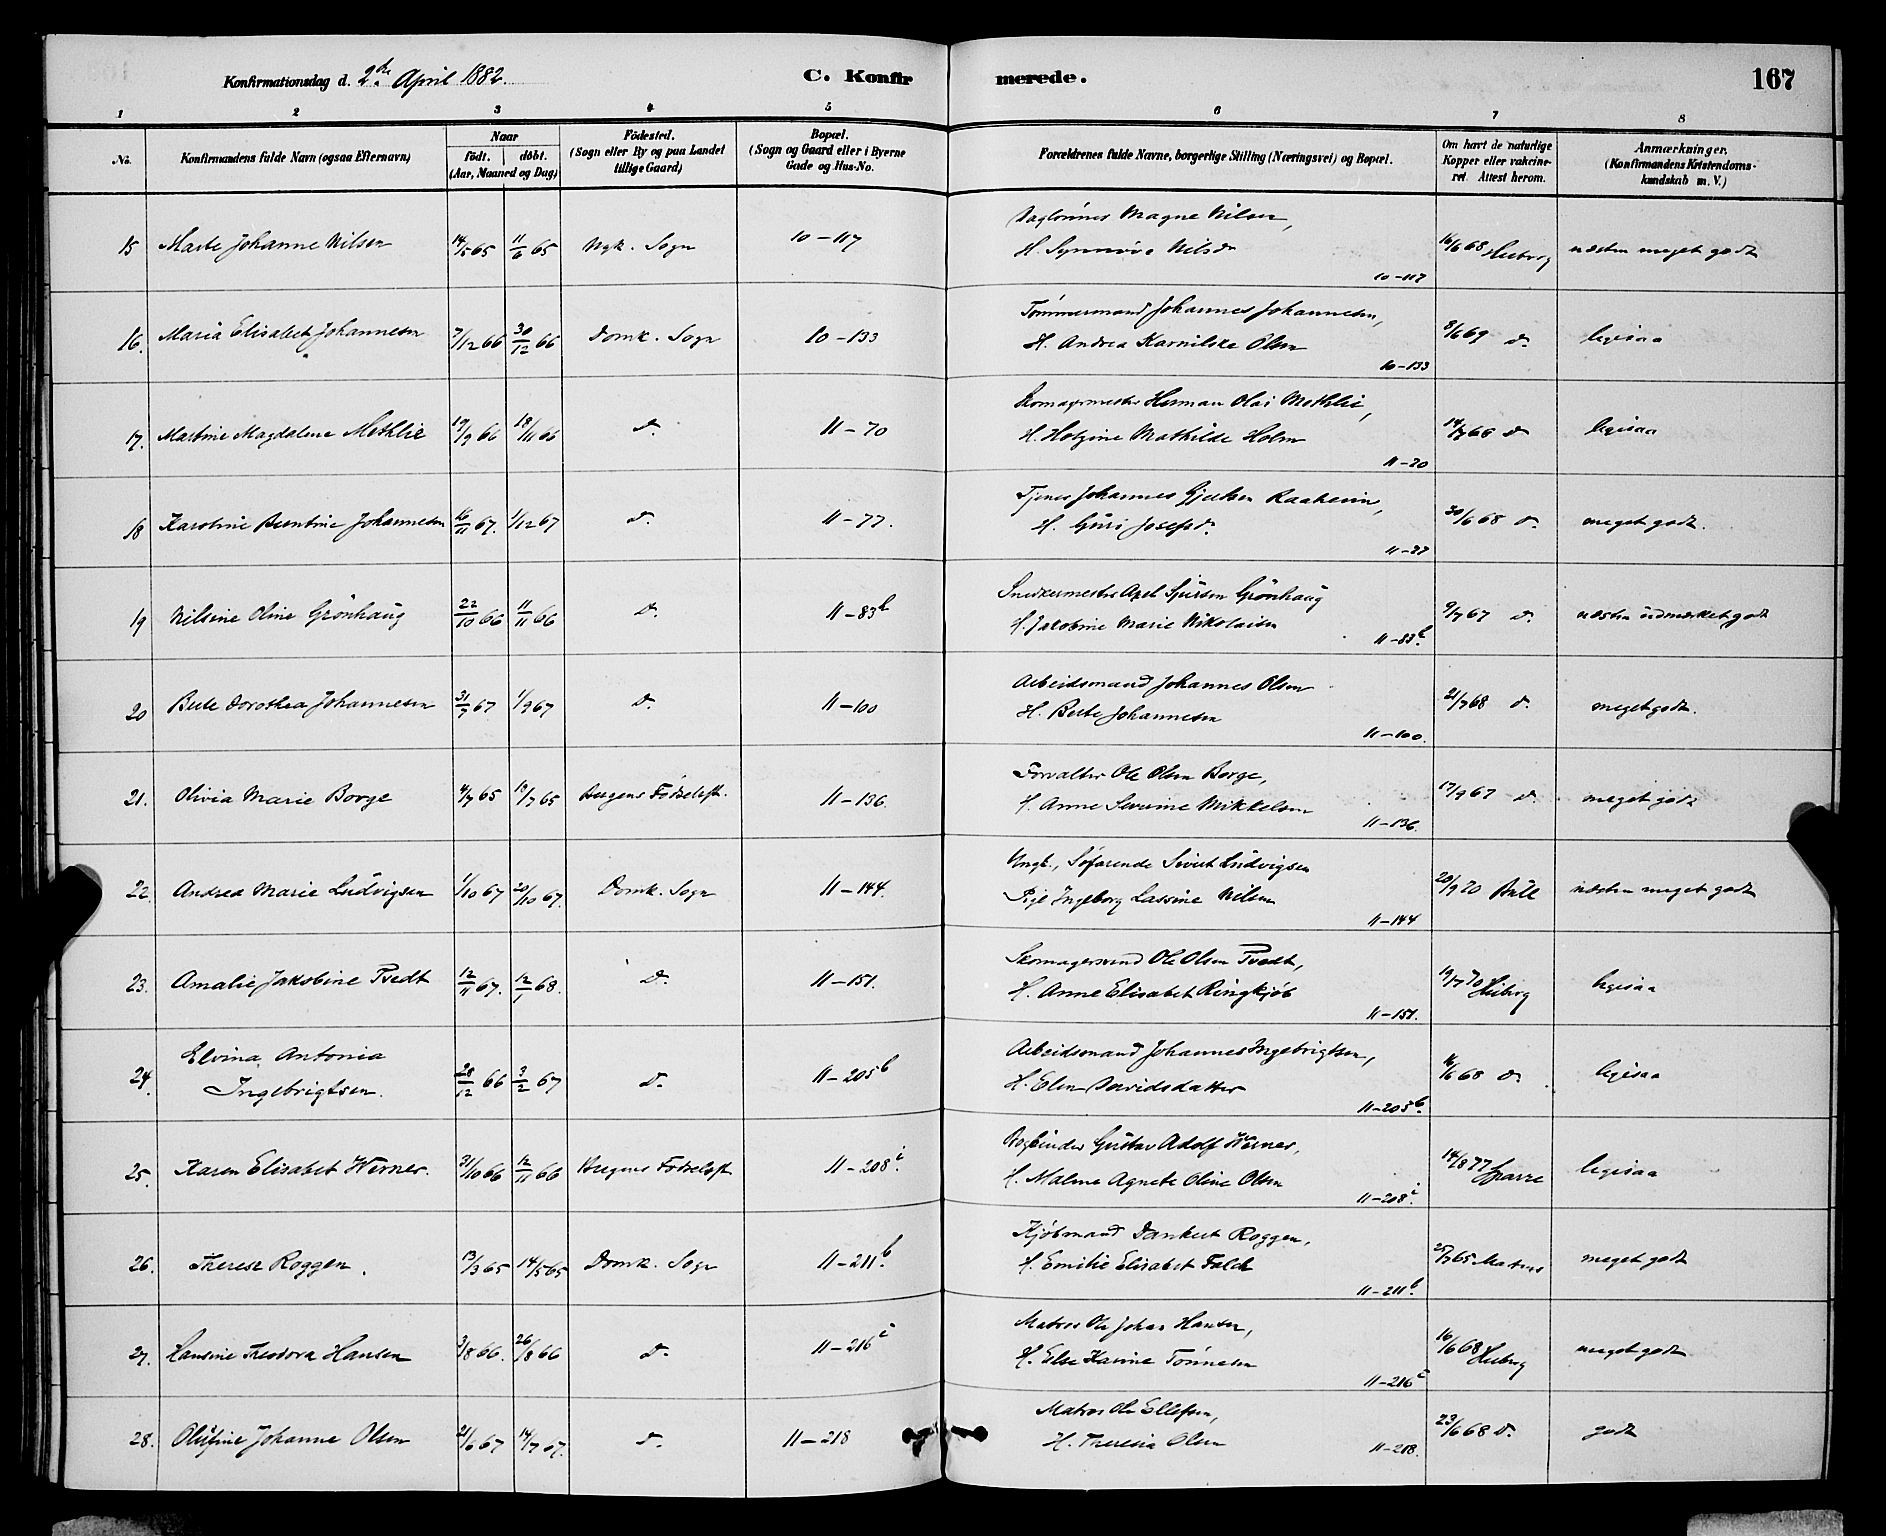 Konfirmationsdag d. 2den April 1882. C. Konfirmerede. 167
1 2 3 4 5 6 7 8
No. Konfirmandens fulde Navn (ogsaa Efternavn) Naar födt. döbt. (Aar, Maaned og Dag) Födested. (Sogn eller By og paa Landet tillige Gaard) Bopæl. (Sogn og Gaard eller i Byerne Gade og Hus-No. Forældrenes fulde Navne, borgerlige Stilling (Næringsvei) og Bopæl. Om havt de naturlige Kopper eller vakcineret. Attest herom. Anmærkninger. (Konfirmandens Kristendomskundskab m. V.)
15 Marte Johanne Nilsen 14/5 65 11/6 65 Nyk. Sogn 10-117 Magne Nilsen,
H. Synnöve Nilsd. 10-117 16/6 68 Heiberg næsten meget godt
16. Maria Elisabet Johannesen 7/12 66 30/12 66 Domk. Sogn 10-133 Tömmermand Johannes Johannesen,
H. Andrea Karnilske Olsen 10-133 8/6 69 do. ligesaa
17. Martine Magdalene Methlie 19/9 66 18/11 66 do. 11-70 Skomagermester Herman Olai Methlie,
H. Helgine Mathilde Holm 11-70 14/7 68 do ligesaa
18 Karoline Berntine Johannesen 16/11 67. 1/12 67 do. 11-77. Tjener Johannes Gjertsen Raaheim,
H. Guri Josefsd. 11-77 30/6 68 do. meget godt.
19 Nilsine Oline Grönhaug 22/10 66 11/11 66 do. 11-83b Snedkermester Axel Sjursen Grönhaug
H. Jakobine Marie Nikolaisen 11-83b. 9/7 67 do. næsten udmærket godt
20 Berte Dorothea Johannesen 31/7 67 1/9 67 do. 11-100 Arbeidsmand Johannes Olsen
H. Berte Johannesen 11-100. 21/7 68 do. meget godt.
21. Olivia Marie Borge 4/7 65 13/7 65 Bergens Födselsst. 11-136. Forvalter Ole Olsen Borge,
H. Anne Severine Mikkelsen 11-136. 17/9 67 do. meget godt
22. Andrea Marie Ludvigsen 1/10 67 20/10 67. Domk. Sogn 11-144. Ungk., Söfarende Sivert Ludvigsen
Pige Ingeborg Lassine Nilsen 11-144 20/9 70 Bull næsten meget godt
23. Amalie Jakobine Tvedt 12/11 67. 12/1 68. do. 11-151. Skomagersvend Ole Olsen Tvedt,
H. Anne Elisabet Ringkjöb 11-151. 19/7 70 Heiberg ligesaa
24. Elvina Antonia
Ingebrigtsen. 28/12 66 3/2 67 do. 11-205b Arbeidsmand Johannes Ingebrigtsen,
H. Elen Davidsdatter 11-205b. 16/6 68 do. ligesaa
25. Karen Elisabet Werner. 31/10 66 12/11 66 Bergens Födselsst 11-208i. Bogbinder Gustav Adolf Werner,
H. Malene Agnete Oline Olsen 11-208i. 14/8 77 Sparre ligesaa
26. Therese Roggen. 13/3 65 14/5 65 Domk. Sogn 11-211b. Kjöbmand Dankert Roggen,
H. Emilie Elisabet Falck 11-211b. 25/7 65 meget godt
27. Hansine Theodora Hansen 3/8 66. 26/8 66 do. 11-216i Matros Ole Johan Hansen,
H. Else Karine Tönnesen 11-216i 16/6 68 Heiberg meget godt
28. Olufine Johanne Olsen 21/6 67 14/7 67. do. 11-218 Matros Ole Ellefsen,
H. Theresia Olsen 11-218. 23/6 68 do. godt